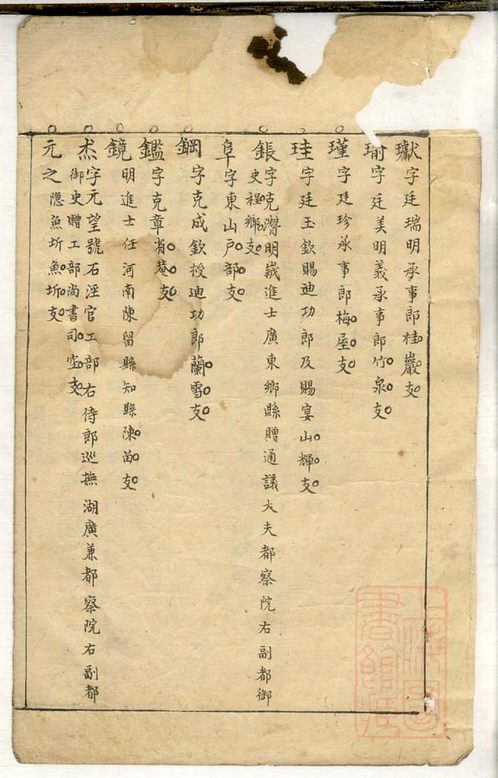 獻字廷瑞明承事郎桂巖支
瑜字廷美明義承事郎竹泉支
瑾字廷珍承事郎梅屋支
珪字廷玉欽賜迪功郎及賜宴山輝支
鋹字克濳明嵗進士廣東鄉縣贈通議大夫都察院右副都御
史程鄉支
阜字東山戸部支
鋼字克成欽授迪功郎蘭雪支
鑑字克章肯菴支
鏡明進士任河南陳留縣知縣陳苗支
杰字元望號石淫官工部右侍郎巡撫湖廣兼都察院右副都
御史贈工部尚書司空支
元之隱魚圻魚圻支